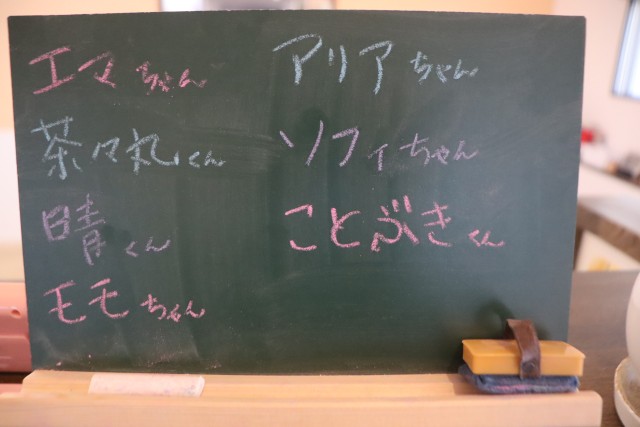 エマちゃん
茶々丸くん
晴くん
モモちゃん
アリアちゃん
ソフィちゃん
ことぶきくん